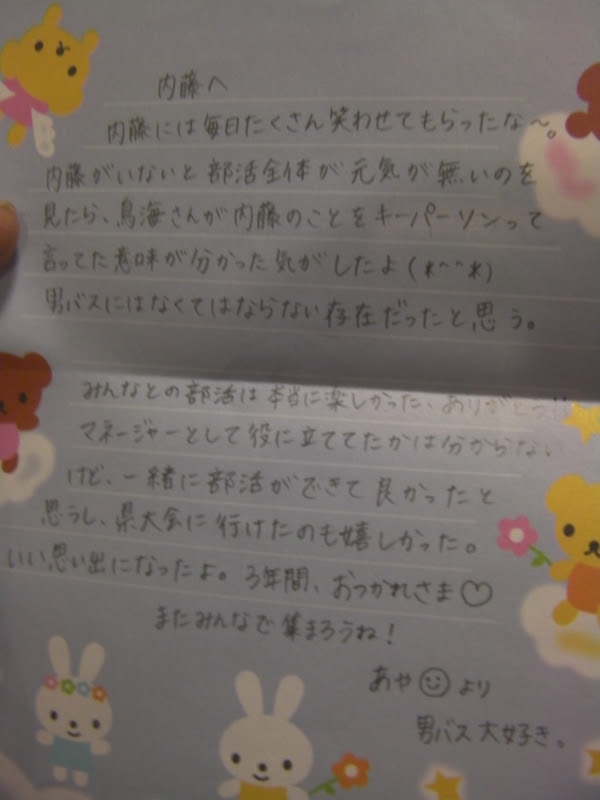 内藤へ
内藤には毎日たくさん笑わせてもらったな〜。
内藤がいないと部活全体が元気が無いのを
見たら、鳥海さんが内藤のことをキーパーソンって
言ってた意味が分かった気がしたよ(*^^*)
男バスにはなくてはならない存在だったと思う。
みんなとの部活は本当に楽しかった、ありがとう!!
マネージャーとして役に立ててたかは分からない
けど、一緒に部活ができて良かったと
思うし、県大会に行けたのも嬉しかった。
いい思い出になったよ。3年間、おつかれさま♡
またみんなで集まろうね!
あや☺より
男バス大好き。